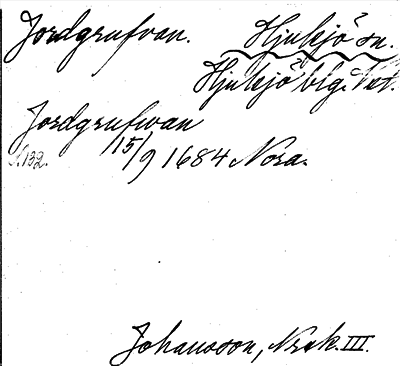 Jordgrufvan.
Hjulsjö sn.
Hjulsjö blg. Vst.
Jordgrufwan
15/9 1684 Nora.
s. 132.
Johansson, Nrsk. III.